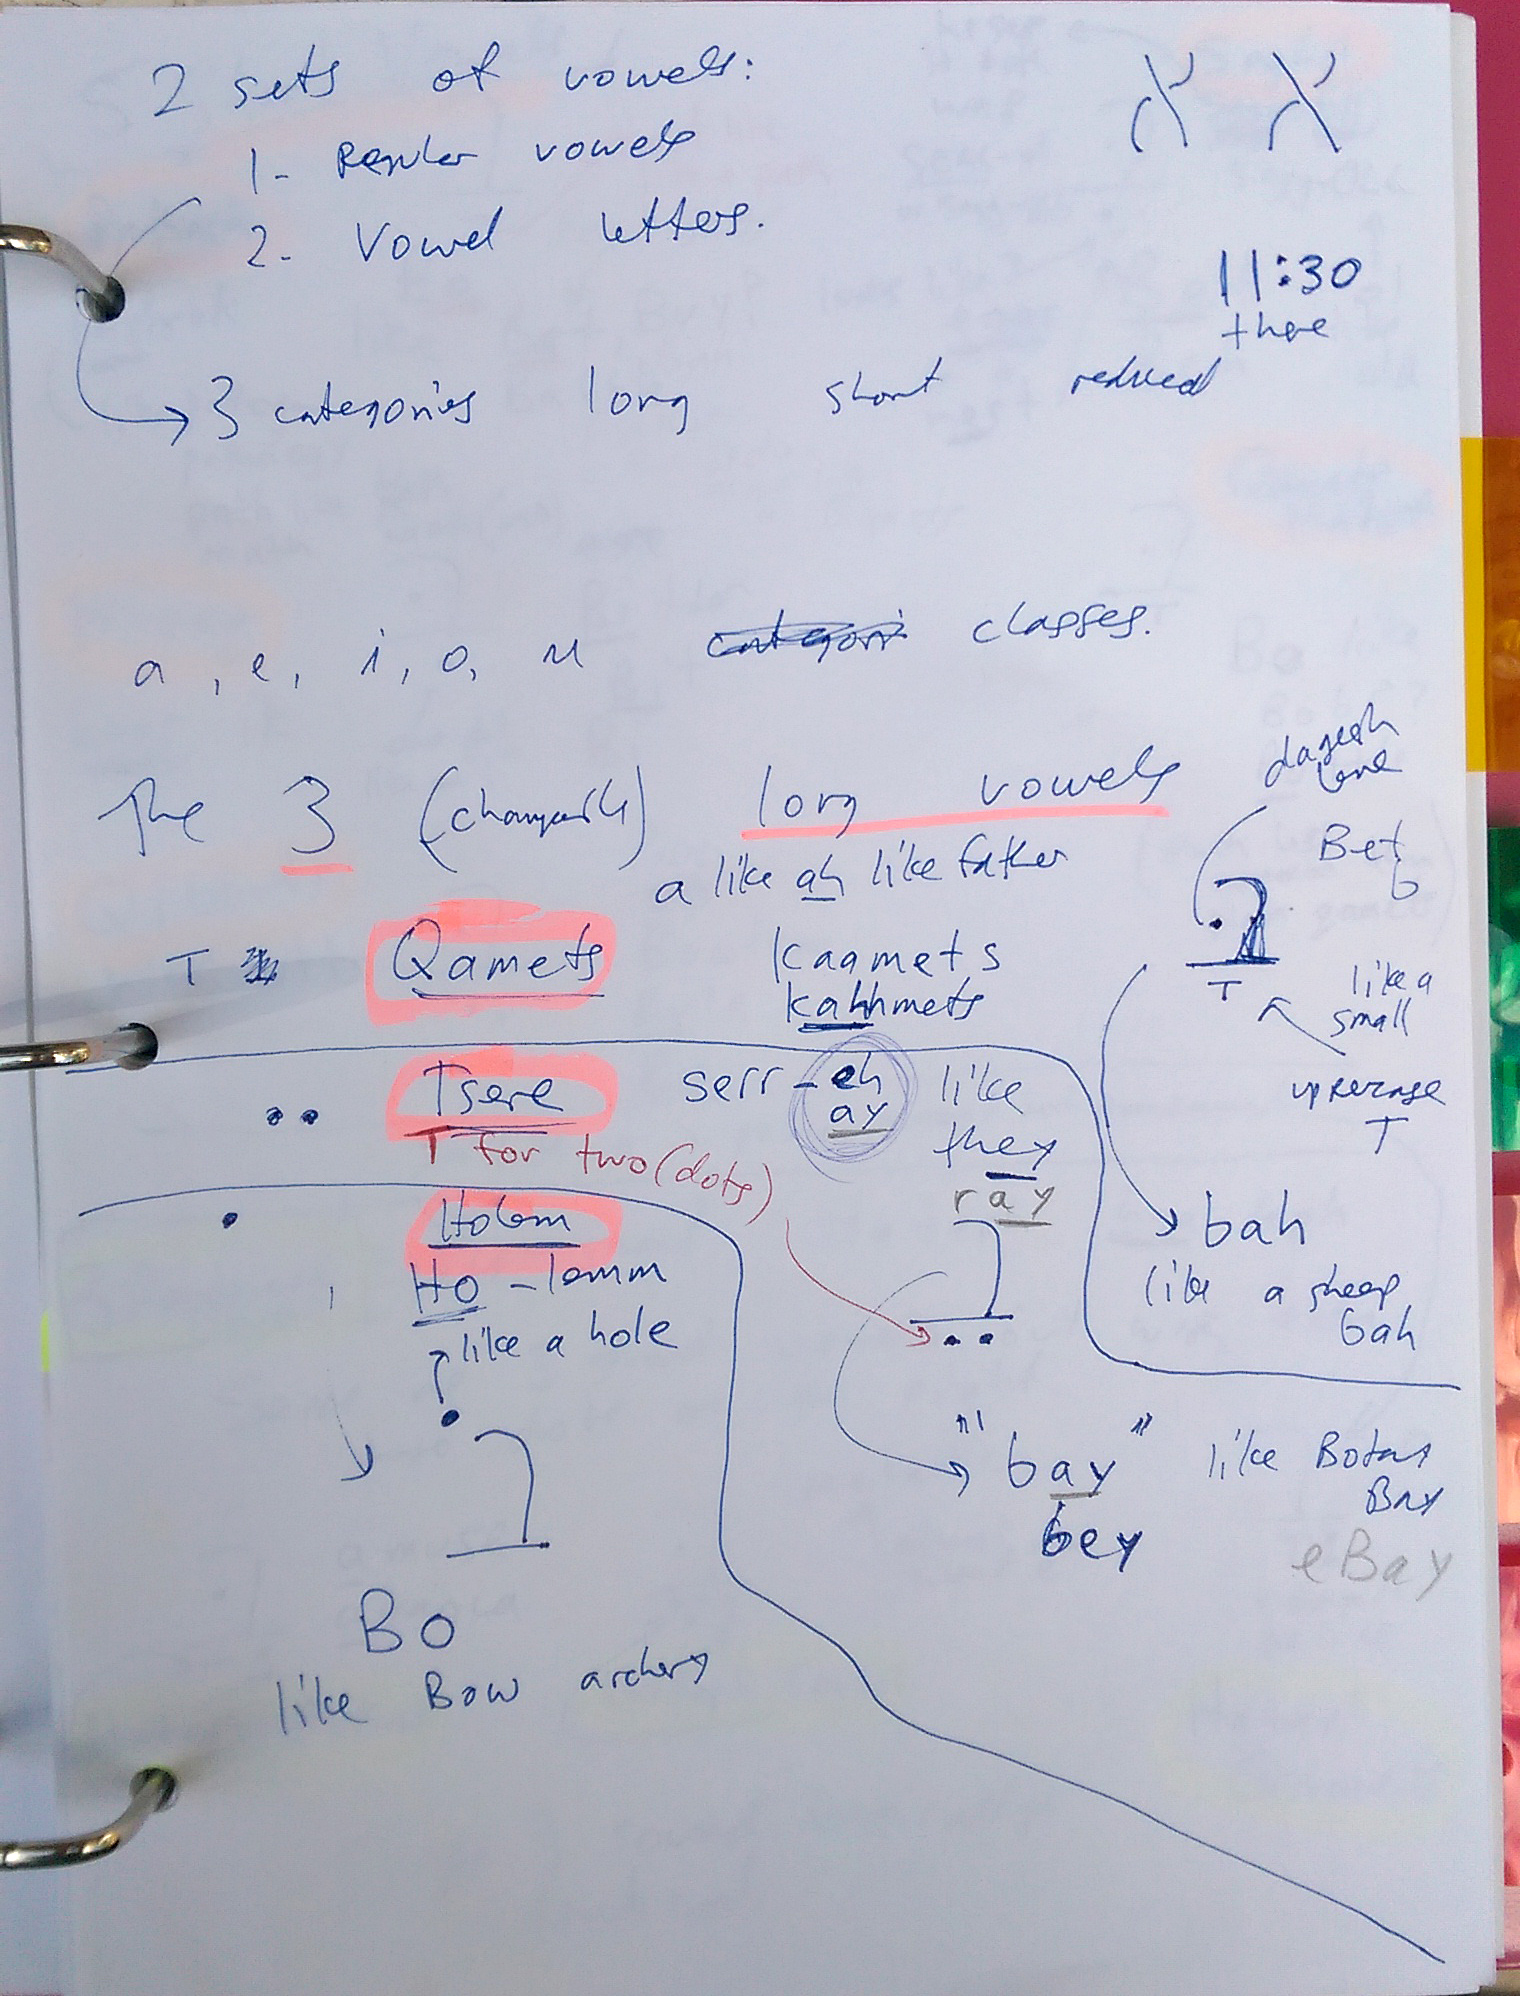 2 sets of vowels:
א א
1- Regular vowels
2- Vowel letters.
11:30
there
3 categories long short reduced
a, e, i, o, u categori classes.
The 3 (changeable) long vowels
dagesh
lene
a like ah like father
Bet
b
T Qamets
Kaamets
kahhmets
T
like a
small
uppercase
T
Tsere
serr-eh
ay
like
they
ray
T for two (dots)
Holem
HO-lemm
like a hole
bah
like a sheep
bah
"bay" like Botany
Bay
bey
eBay
Bo
like Bow archery